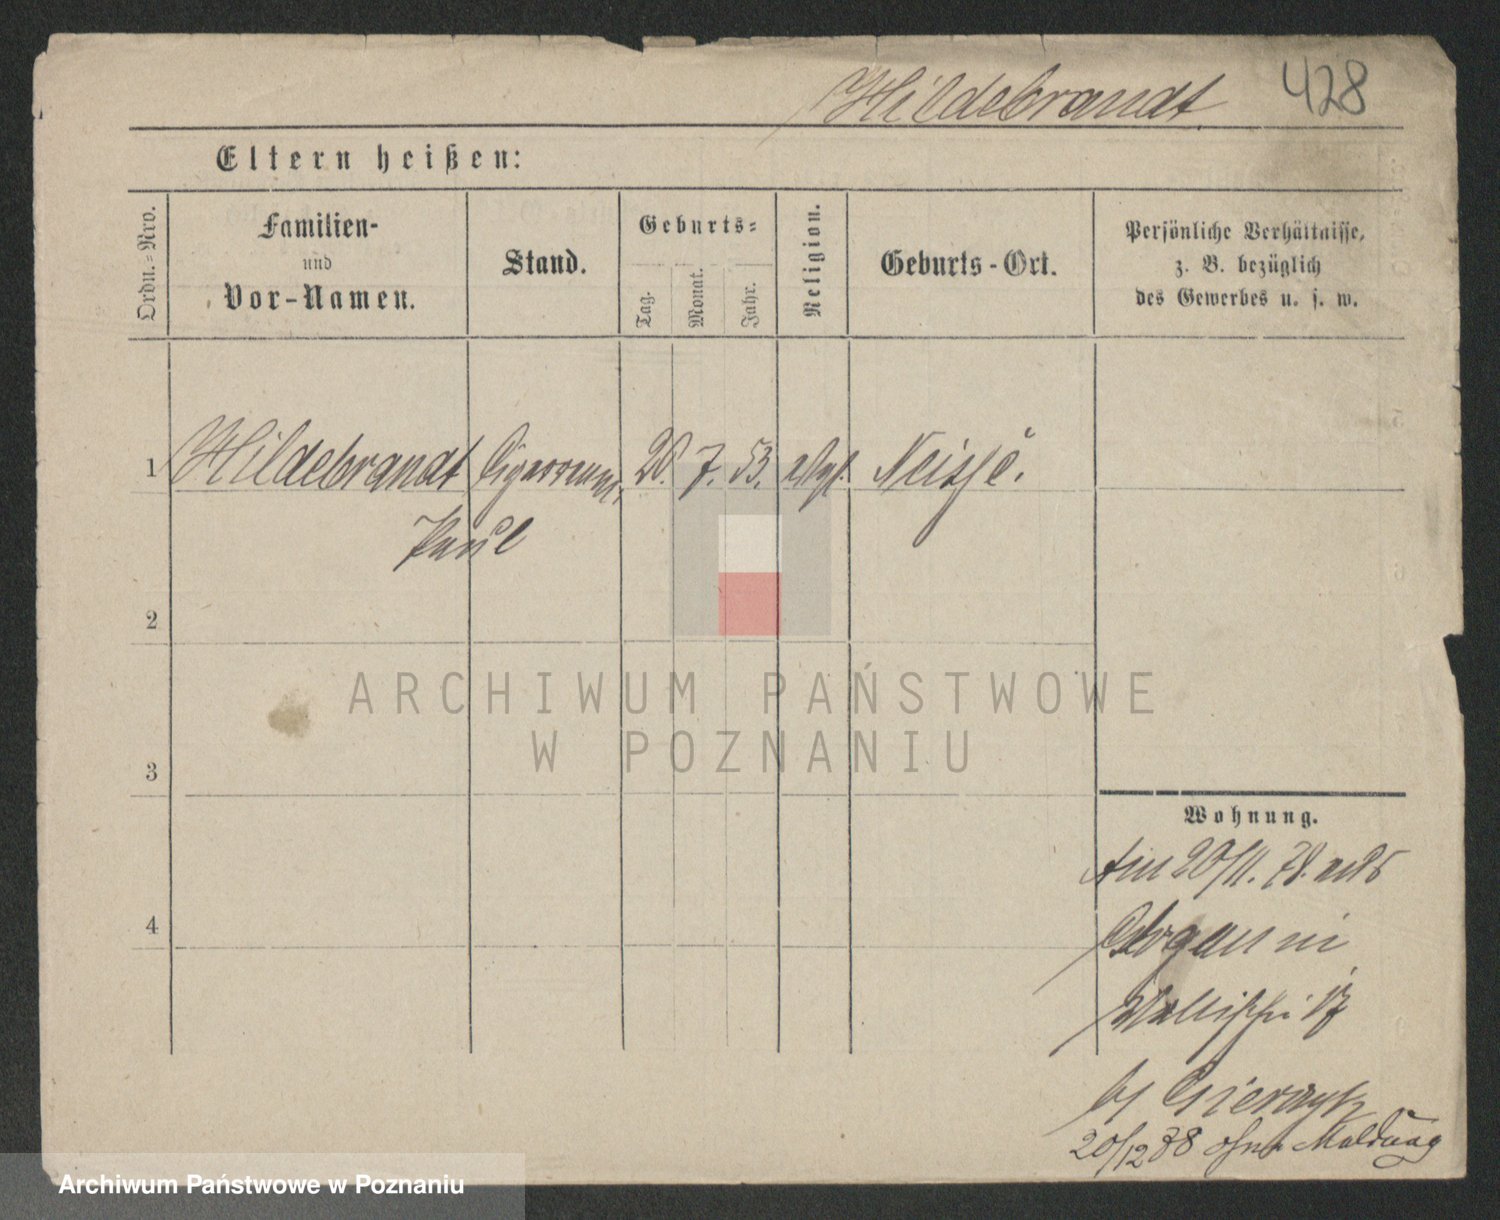 Hildebrandt 428
Eltern heißen:
Ordn.-Nro.
Familien-
und
Vor-Namen.
Stand.
Geburts-
Tag.
Monat.
Jahr.
Religion.
Geburts-Ort.
Persönliche Verhältnisse,
z. B. bezüglich
des Gewerbes u. s. w.
1 Hildebrandt 7. 53. Neisse.
Paul
2
3
4
Wohnung.
Am 20/11. 78.
Wallischei 17
20/12 88 ohne Meldung
ARCHIWUM PAŃSTWOWE
W POZNANIU
Archiwum Państwowe w Poznaniu